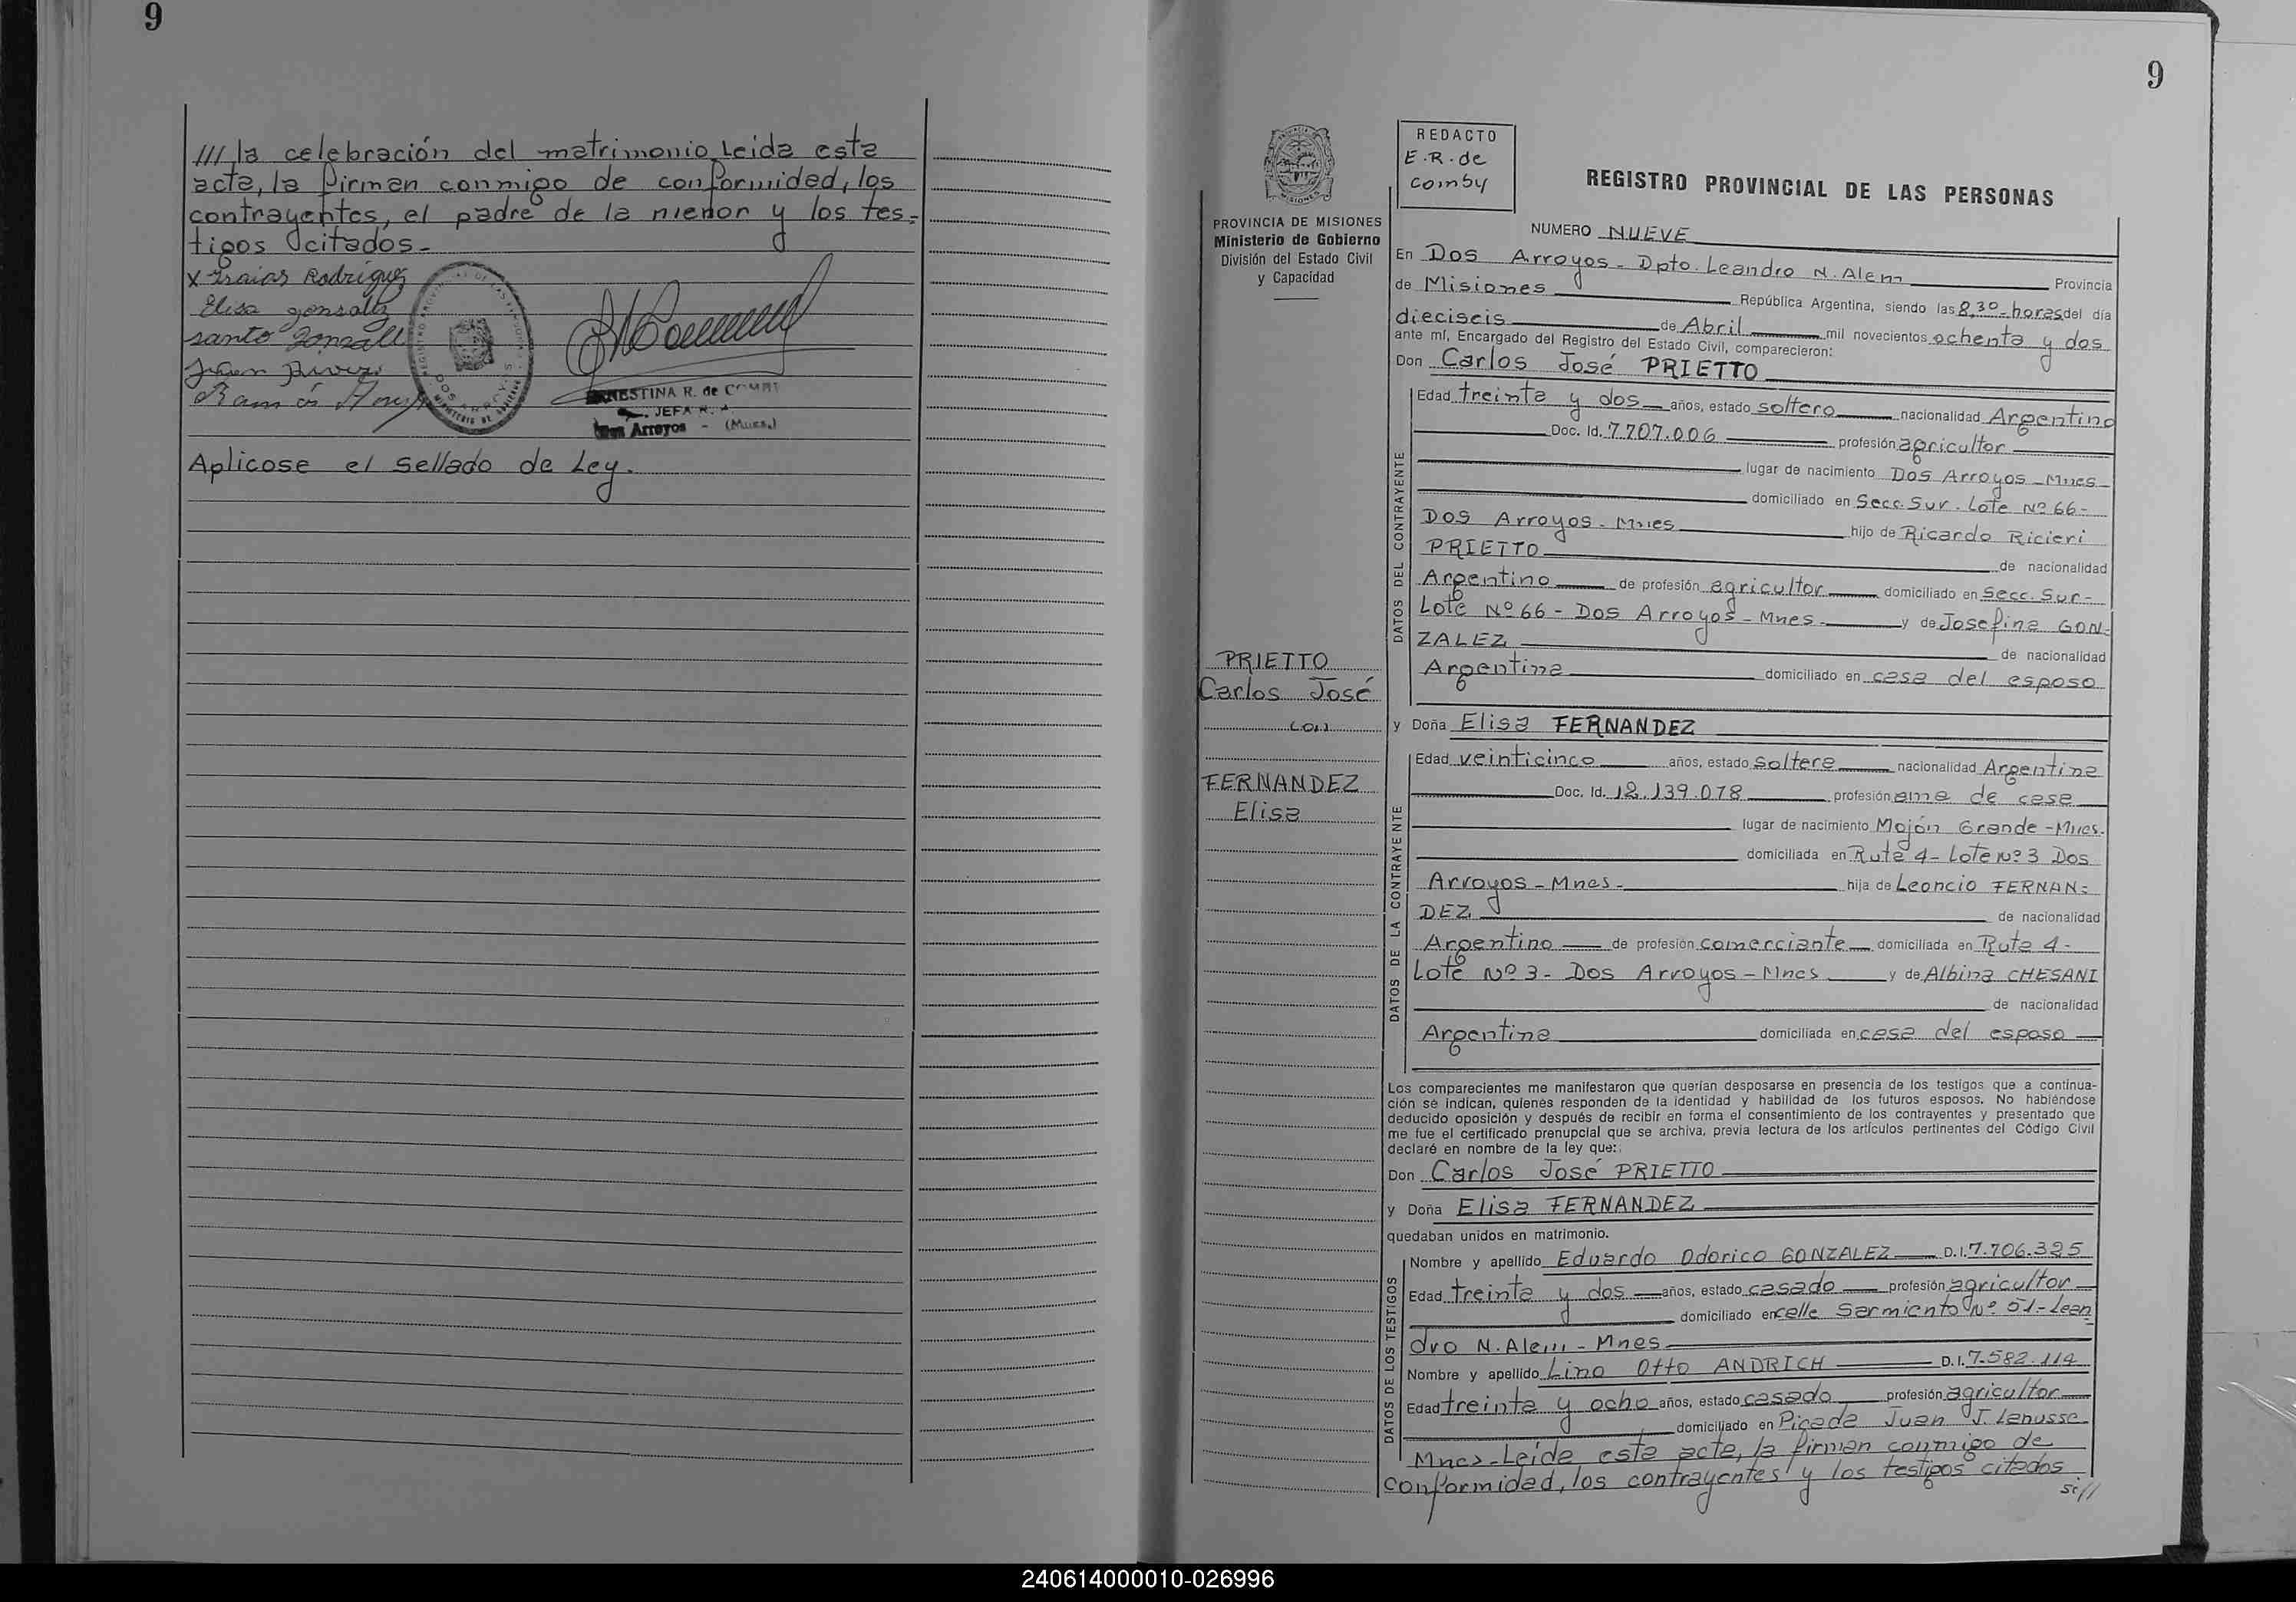 9
/// la celebración del matrimonio. Leida esta
acta, la firman conmigo de conformidad, los
contrayentes, el padre de la menor y los tes-
tigos citados.-
x Isaias Rodriguez
Elisa gonzalez
santo Gonzalez
Juan
Ramón
ERNESTINA R. de COIMBY
JEFA R.
Dos Arroyos - (Mnes.)
Aplicose el sellado de Ley.
9
PROVINCIA DE MISIONES
Ministerio de Gobierno
División del Estado Civil
y Capacidad
REDACTO
E.R. de
coimby
REGISTRO PROVINCIAL DE LAS PERSONAS
NUMERO NUEVE
En Dos Arroyos - Dpto. Leandro N. Alem Provincia
de Misiones República Argentina, siendo las 8,30 horas del día
dieciseis de Abril mil novecientos ochenta y dos
ante mí, Encargado del Registro del Estado Civil, comparecieron:
Don Carlos José PRIETTO
DATOS DEL CONTRAYENTE
Edad treinta y dos años, estado soltero nacionalidad Argentino
Doc. Id. 7.707.006 profesión agricultor
lugar de nacimiento Dos Arroyos - Mnes
domiciliado en Secc. Sur. Lote Nº 66 -
Dos Arroyos - Mnes hijo de Ricardo Ricieri
PRIETTO de nacionalidad
Argentino de profesión agricultor domiciliado en Secc. Sur -
Lote Nº 66 - Dos Arroyos - Mnes. y de Josefina GON-
ZALEZ de nacionalidad
Argentina domiciliado en casa del esposo
PRIETTO
Carlos José
con
FERNANDEZ
Elisa
y Doña Elisa FERNANDEZ
DATOS DE LA CONTRAYENTE
Edad veinticinco años, estado soltera nacionalidad Argentina
Doc. Id. 12.139.078 profesión ama de casa
lugar de nacimiento Mojón Grande - Mnes.
domiciliada en Ruta 4 - Lote Nº 3 Dos
Arroyos - Mnes - hija de Leoncio FERNAN-
DEZ de nacionalidad
Argentino de profesión comerciante domiciliada en Ruta 4 -
Lote Nº 3 - Dos Arroyos - Mnes y de Albina CHESANI
de nacionalidad
Argentina domiciliada en casa del esposo
Los comparecientes me manifestaron que querían desposarse en presencia de los testigos que a continua-
ción se indican, quienes responden de la identidad y habilidad de los futuros esposos. No habiéndose
deducido oposición y después de recibir en forma el consentimiento de los contrayentes y presentado que
me fue el certificado prenupcial que se archiva, previa lectura de los artículos pertinentes del Código Civil
declaré en nombre de la ley que:
Don Carlos José PRIETTO
y Doña Elisa FERNANDEZ
quedaban unidos en matrimonio.
DATOS DE LOS TESTIGOS
Nombre y apellido Eduardo Odorico GONZALEZ D.I. 7.706.325
Edad treinta y dos años, estado casado profesión agricultor
domiciliado en calle Sarmiento Nº 51 - Lean
dro N. Alem - Mnes
Nombre y apellido Lino Otto ANDRICH D.I. 7.582.114
Edad treinta y ocho años, estado casado profesión agricultor
domiciliado en Picada Juan J. Lanusse
Mnes - Leida esta acta, la firman conmigo de
conformidad, los contrayentes y los testigos citados
si//
240614000010-026996